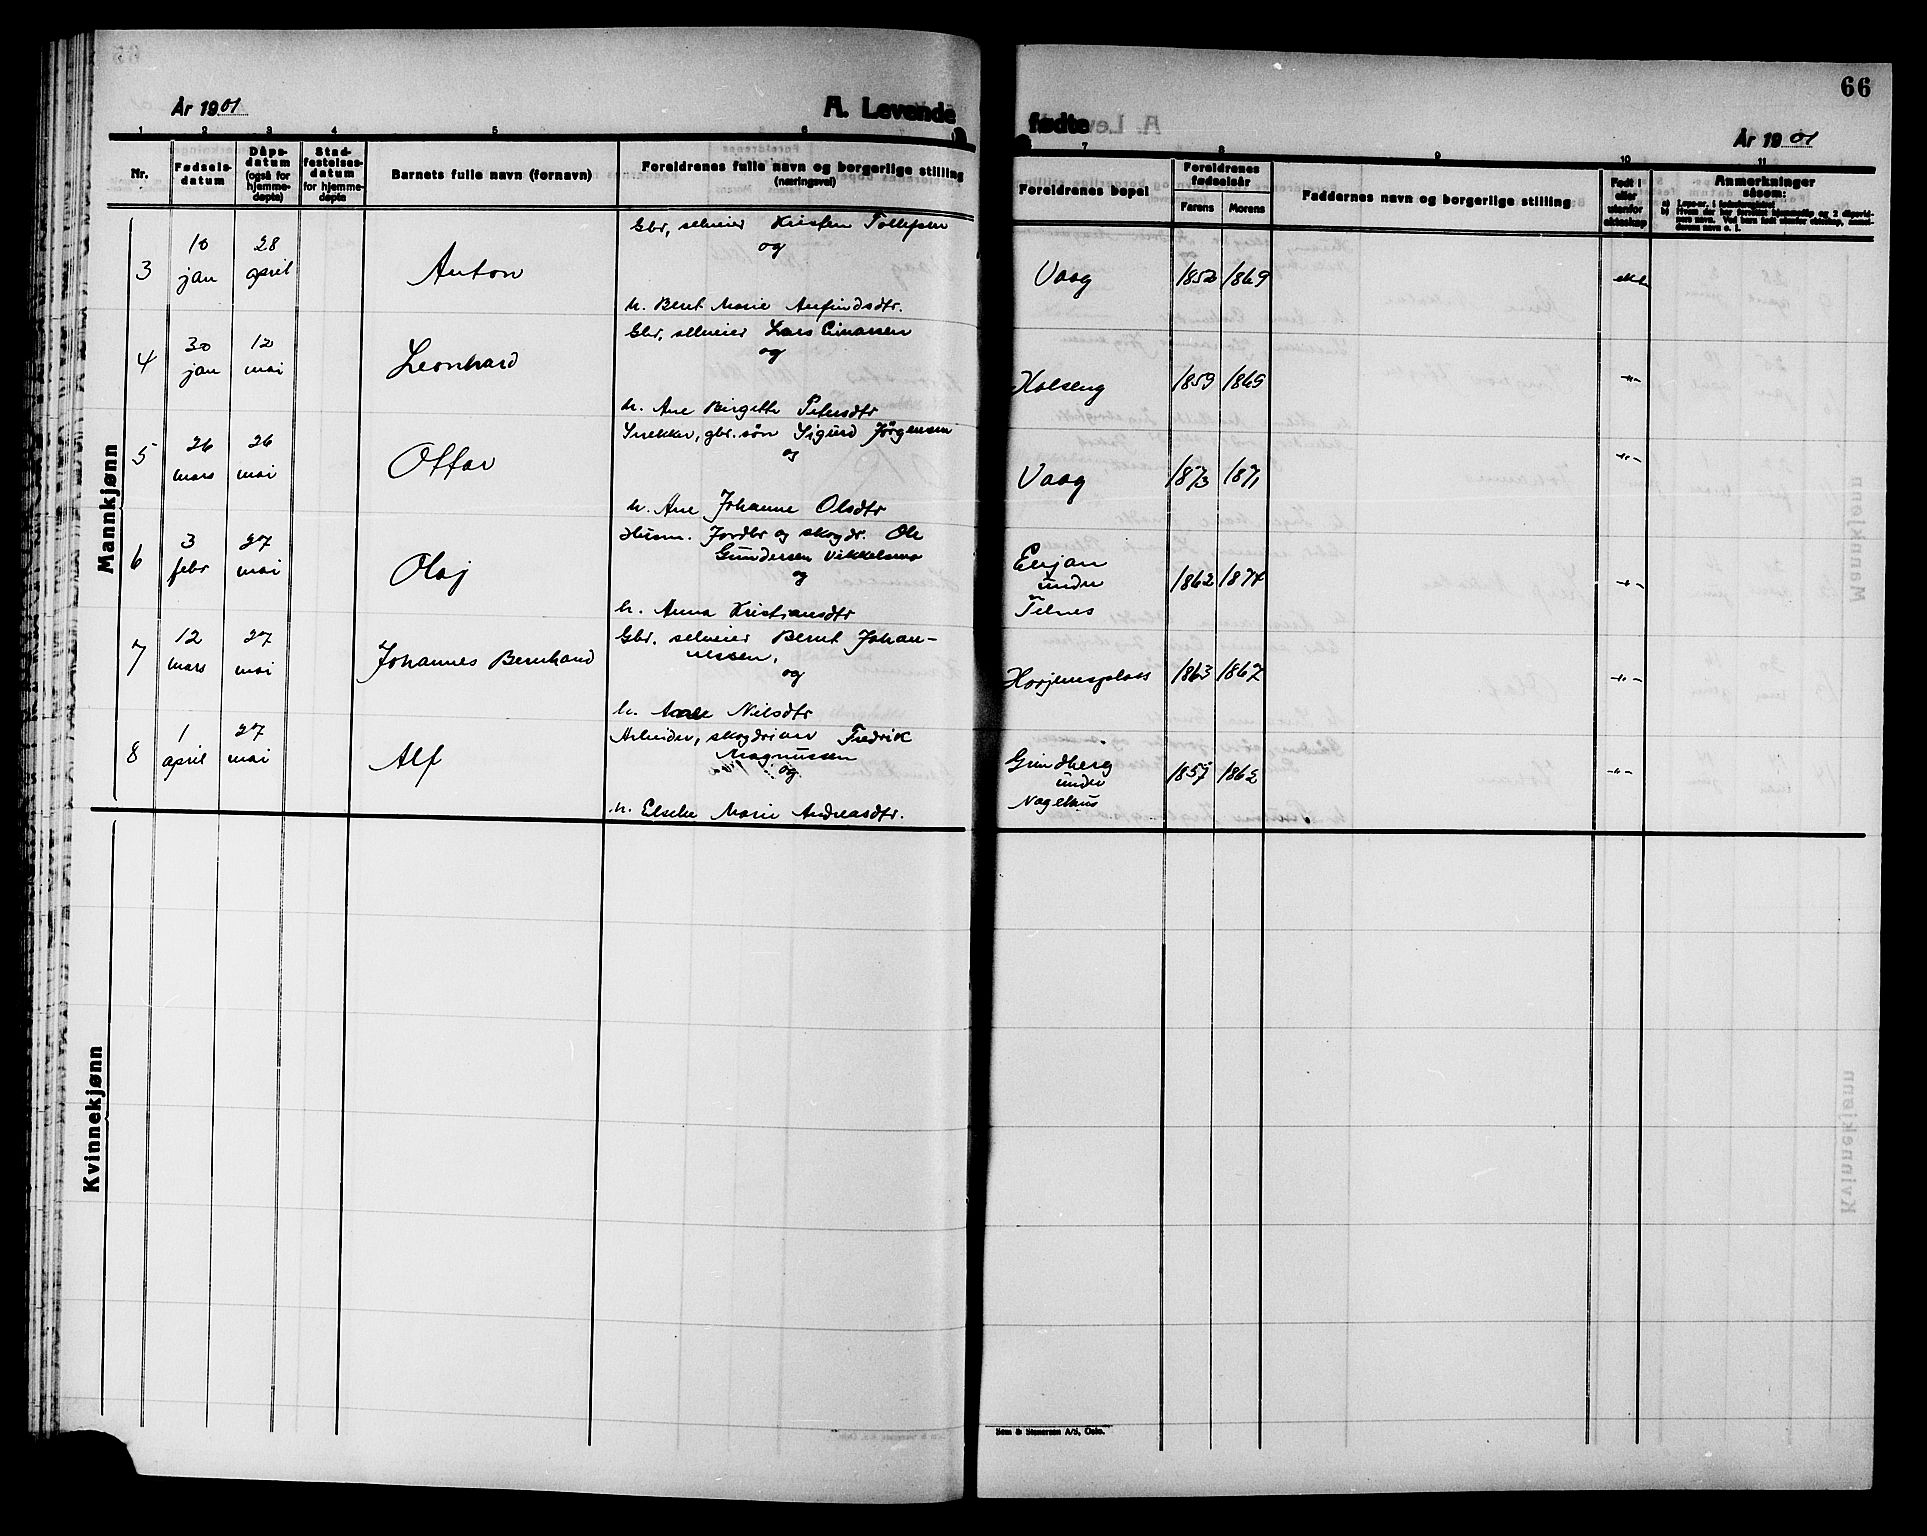 66
År 1901
A. Levende
fødte
År 1901
1 2 3 4 5 6
7 8 9 10 11
Nr.
Fødsels-
datum
Dåps-
datum
(også for
hjemme-
døpte)
Stad-
festelses-
datum
for hjemme-
døpte
Barnets fulle navn (fornavn)
Foreldrenes fulle navn og borgerlige stilling
(næringsvei)
Foreldrenes bopel
Foreldrenes
fødselsår
Farens
Morens
Faddernes navn og borgerlige stilling
Født i
eller
utenfor
ekteskap
Anmerkninger
såsom:
Mannkjønn
3
10
jan
28
april
Anton
Gbr, selveier Kristen Tollefsen
og
h. Berit Marie Arfindsdtr.
Vaag
1852
1869
ekte
4
30
jan
12
mai
Leonhard
Gbr, selveier Lars Einarsen
og
h. Ane Birgitte Petersdtr
Holseng
1859
1869
-"-
5
26
mars
26
mai
Ottar
Snekker, gbr. søn Sigurd Jørgensen
og
h. Ane Johanne Olsdtr
Vaag
1873
1871
-"-
6
3
febr
27
mai
Olaf
Husm. Jordbr og skogdr. Ole
Gundersen
og
h. Anna Kristiansdtr
under
Tilnes
1862
1874
-"-
7
12
mars
27
mai
Johannes Bernhard
Gbr. selveier Bernt Johan-
nessen,
og
h. Nilsdtr
Horjemsplass
1863
1867
-"-
8
1
april
27
mai
Alf
Arbeider, skogdriver Fredrik
Magnussen
og
h. Elsebe Marie Andreasdtr.
Grundberg
under
Nagelhus
1857
1862
-"-
Kvinnekjønn
Sem & Stenersen A/S, Oslo.